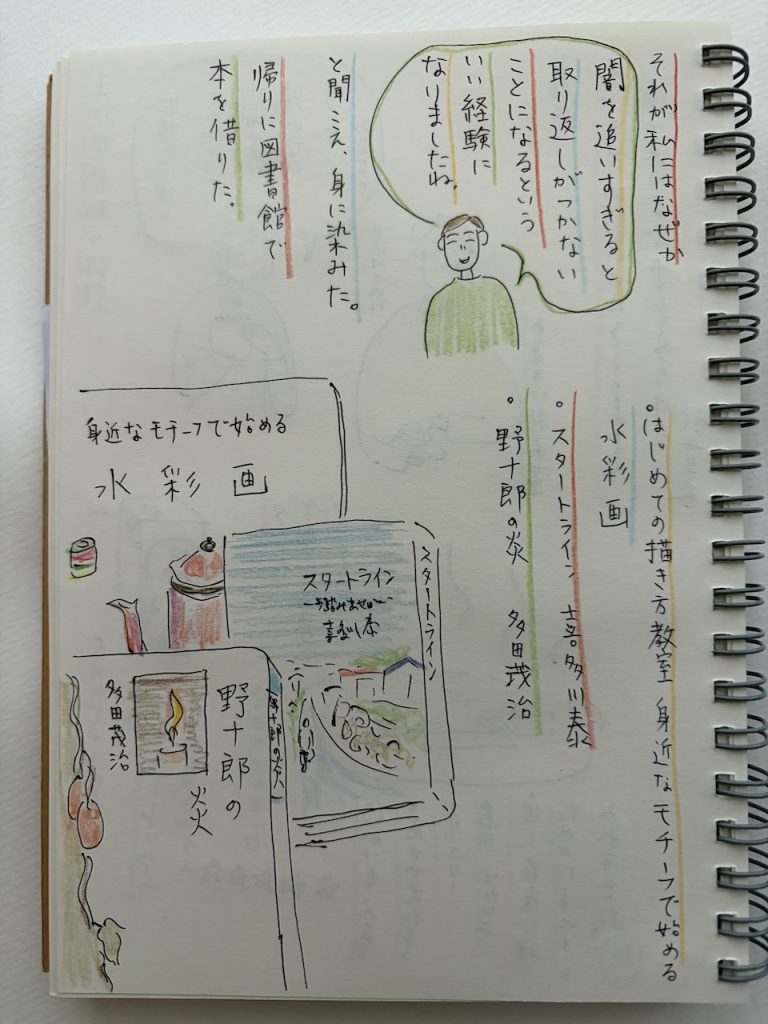 それが私にはなぜか
闇を追いすぎると
取り返しがつかない
ことになるという
いい経験に
なりましたね。
と聞こえ、身に染みた。
帰りに図書館で
本を借りた。
。はじめての描き方教室 身近なモチーフで始める
水彩画
。スタートライン 喜多川泰
。野十郎の炎 多田茂治
身近なモチーフで始める
水彩画
スタートライン
スタートライン
野十郎の炎
野十郎の
炎
多田茂治